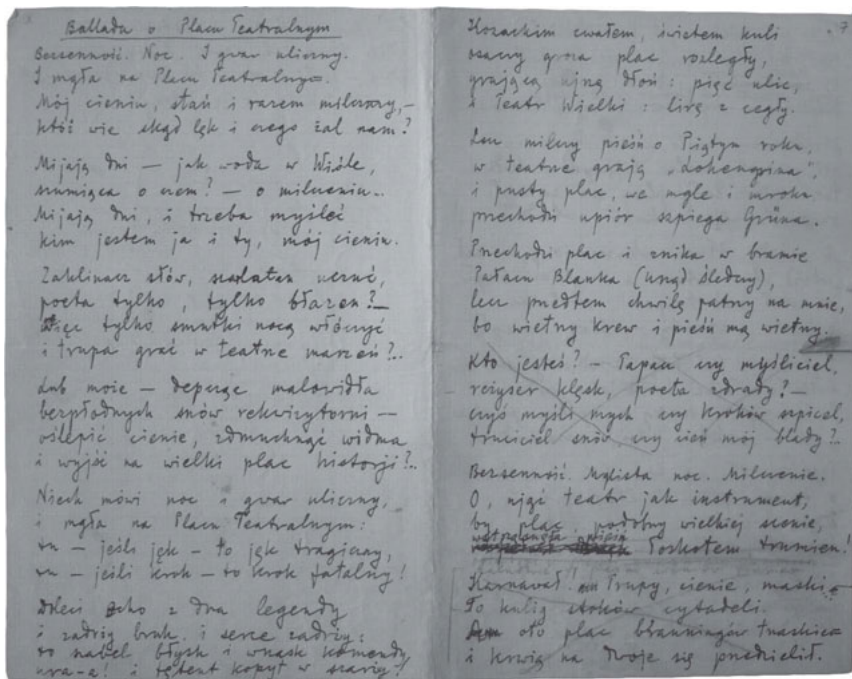 Ballada o Placu Teatralnym
Bezsenność. Noc. I gwar uliczny.
I mgła na Placu Teatralnym.
Mój cieniu, stań i razem milczmy,–
któż wie skąd lęk i czego żal nam?
Mijają dni — jak woda w Wiśle,
szumiąca o czem? — o milczeniu..
Mijają dni, i trzeba myśleć
kim jestem ja i ty, mój cieniu.
Zaklinacz słów, szarlatan uczuć,
poeta tylko, tylko błazen?–
Więc tylko smutki nocą włóczyć
i trupa grać w teatrze marzeń?..
Lub może — depcząc malowidła
bezpłodnych snów rekwizytorni —
oślepić cienie, zdmuchnąć widma
i wyjść na wielki plac historji?..
Niech mówi noc i gwar uliczny,
i mgła na Placu Teatralnym:
tu — jeśli jęk — to jęk tragiczny,
tu — jeśli krok — to krok fatalny!
echo z dna legendy
i zadrży bruk. i serce zadrży:
to szabel błysk i wrzask komendy
ura-a! i tętent kopyt w szarży!
7
Kozackim cwałem, świstem kuli
osaczy groza plac rozległy,
grającą ujrzą dłoń: pięć ulic,
i Teatr Wielki: lirę z cegły.
Lecz milczy pieśń o Piątym roku,
w teatrze grają „Lohengrina”,
i pusty plac, we mgle i mroku
przechodzi upiór szpiega Grüna.
Przechodzi plac i znika w bramie
Pałacu Blanka (urząd śledczy),
lecz przedtem chwilę patrzy na mnie,
bo wietrzy krew i pieśń mą wietrzy.
Kto jesteś? – Łapacz czy myśliciel,
reżyser klęsk, poeta zdrady?–
czyś myśli mych czy kroków szpicel,
truciciel snów czy cień mój blady?..
Bezsenność. Mglista noc. Milczenie.
O, ująć teatr jak instrument,
by plac, podobny wielkiej scenie,
wstrząsnęła pieśń łoskotem trumien!
Karnawał! Trupy, cienie, maski..
To kulig stoków cytadeli.
oto plac brauningów trzaskiem
i krwią na dwoje się przedzielił.